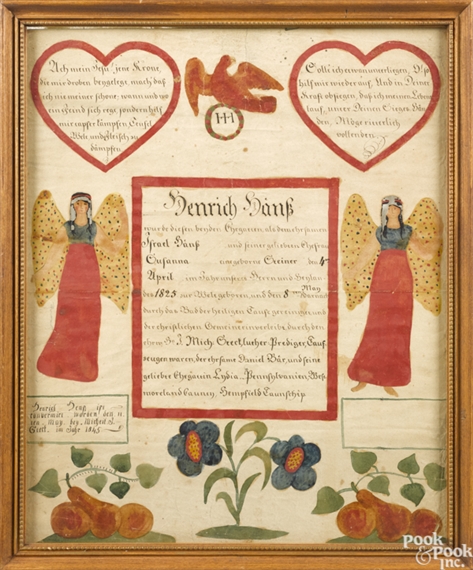 Ach mein Jesu, jene Krone,
die mir droben beygelegt, mach daß
ich nie meiner schone, wann und wo
ein Feind sich regt, sondern hilf
mir tapfer kämpfen, Teufel
Welt und Fleisch zu
dämpfen.
HH
Sollt ich unterliegen, O so
hilf mir wieder auf. Und in Deiner
Kraft obsiegen, daß ich meinen Lebens
lauf, unter Deinen Sieges Fah
nen, Möge ritterlich
vollenden
Henrich Hänß
wurde diesen beyden Ehegatten, als dem ehrsamen
Israel Hänß und seiner geliebten Ehefrau
Susanna eine geborne Steiner den 4ten
April im Jahr unsers Herrn und Heylan
des 1823 zur Welt geboren, und den 8ten May
durch das Bad der heiligen Taufe gereiniget und
der christlichen Gemeine einverleibt, durch den
ehrw. Hr. J. Mich. Steck, luther. Prediger, Tauf
zeugen waren, der ehrsame Daniel Bär, und seine
geliebte Ehegattin Lydia. Pennsylvanien, Weß
moreland Caunty, Hempfield Taunschip
Henrich Hons ist
worden den
May, bey Micheal J.
Steck. im Jahr 1845
Pook & Pook
Inc.